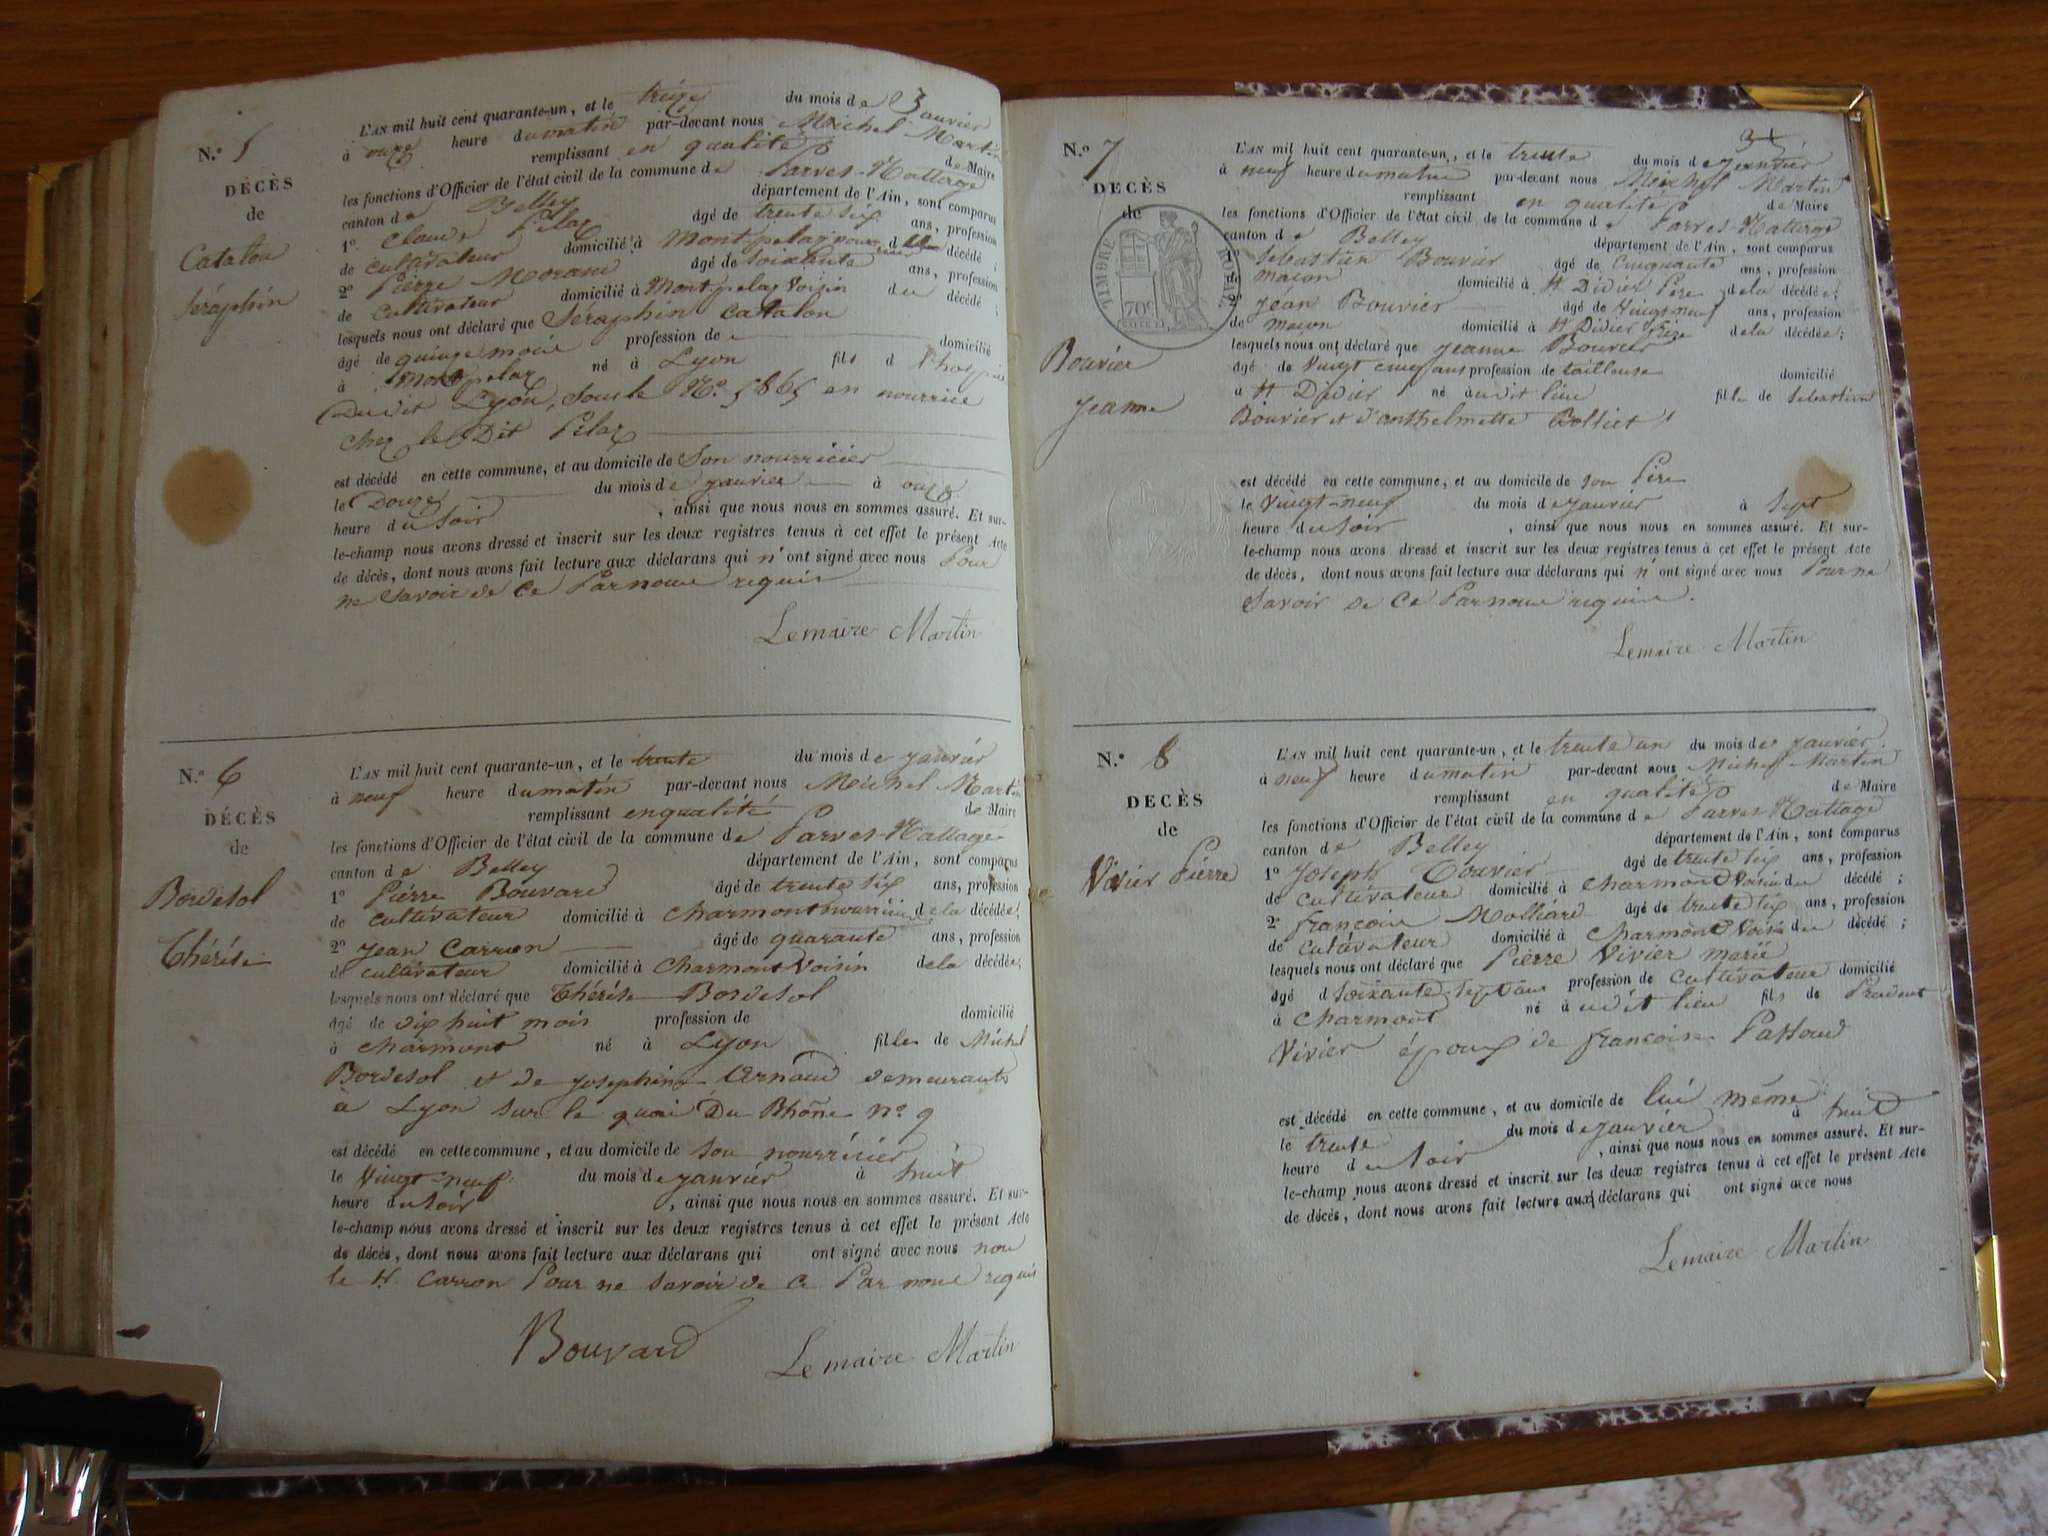 N.º 5
DÉCÈS
de
Catalon
Séraphin
L'AN mil huit cent quarante-un, et le treize du mois de Janvier
à onze heure du matin par-devant nous Michel Martin
remplissant en qualité de Maire
les fonctions d'Officier de l'état civil de la commune de Parves-Nattage
canton de Belley département de l'Ain, sont comparus
1º Claude Pélaz âgé de trente six ans, profession
de cultivateur domicilié à Montpelaz décédé ;
2º Pierre Morand âgé de soixante ans, profession
de cultivateur domicilié à Montpelaz voisin du décédé ;
lesquels nous ont déclaré que Séraphin Catalon
âgé de quinze mois profession de domicilié
à Montpelaz né à Lyon fils d l'hospice
Dudit Lyon, sous le Nº 5865 en nourrice
chez le Dit Pélaz
est décédé en cette commune, et au domicile de son nourricier
le Douze du mois de janvier à onze
heure du soir , ainsi que nous nous en sommes assuré. Et sur-
le-champ nous avons dressé et inscrit sur les deux registres tenus à cet effet le présent Acte
de décès, dont nous avons fait lecture aux déclarans qui n'ont signé avec nous Pour
ne savoir de ce Par nous requis
Lemaire Martin
N.º 6
DÉCÈS
de
Bordesol
Thérèse
L'AN mil huit cent quarante-un, et le trente du mois de janvier
à neuf heure du matin par-devant nous Michel Martin
remplissant en qualité de Maire
les fonctions d'Officier de l'état civil de la commune de Parves-Nattage
canton de Belley département de l'Ain, sont comparus
1º Pierre Bouvard âgé de trente six ans, profession
de cultivateur domicilié à Charmont nourricier de la décédée ;
2º Jean Carron âgé de quarante ans, profession
de cultivateur domicilié à Charmont voisin de la décédée ;
lesquels nous ont déclaré que Thérèse Bordesol
âgé de dix huit mois profession de domicilié
à Charmont né à Lyon fille de Michel
Bordesol et de Josephine Arnaud demeurants
à Lyon sur le quai Du Rhône nº 9
est décédé en cette commune, et au domicile de son nourricier
le Vingt-neuf du mois de janvier à huit
heure du soir , ainsi que nous nous en sommes assuré. Et sur-
le-champ nous avons dressé et inscrit sur les deux registres tenus à cet effet le présent Acte
de décès, dont nous avons fait lecture aux déclarans qui ont signé avec nous non
le Sr. Carron Pour ne savoir de ce Par nous requis
Bouvard Lemaire Martin
N.º 7
DECÈS
de
TIMBRE ROYAL
70c
Bouvier
Jeanne
L'AN mil huit cent quarante-un, et le trente du mois de janvier
à neuf heure du matin par-devant nous Michel Martin
remplissant en qualité de Maire
les fonctions d'Officier de l'état civil de la commune de Parves-Nattage
canton de Belley département de l'Ain, sont comparus
Sébastien Bouvier âgé de Cinquante ans, profession
de maçon domicilié à St Didier Père de la décédée ;
2º Jean Bouvier âgé de Vingt-neuf ans, profession
de maçon domicilié à St Didier frère de la décédée ;
lesquels nous ont déclaré que Jeanne Bouvier
âgé de vingt cinq ans profession de tailleuse domicilié
à St Didier né audit lieu fille de Sébastien
Bouvier et d'anthelmette Bolliet
est décédé en cette commune, et au domicile de son Père
le Vingt-neuf du mois de janvier à sept
heure du soir , ainsi que nous nous en sommes assuré. Et sur-
le-champ nous avons dressé et inscrit sur les deux registres tenus à cet effet le présent Acte
de décès, dont nous avons fait lecture aux déclarans qui n'ont signé avec nous Pour ne
savoir de ce Par nous requis.
Lemaire Martin
N.º 8
DECÈS
de
Vivier Pierre
L'AN mil huit cent quarante-un, et le trente un du mois de janvier
à neuf heure du matin par-devant nous Michel Martin
remplissant en qualité de Maire
les fonctions d'Officier de l'état civil de la commune de Parves-Nattage
canton de Belley département de l'Ain, sont comparus
1º Joseph Bouvier âgé de trente six ans, profession
de cultivateur domicilié à Charmont voisin du décédé ;
2º françois Molliard âgé de trente six ans, profession
de cultivateur domicilié à Charmont voisin du décédé ;
lesquels nous ont déclaré que Pierre Vivier marié
âgé d soixante-sept ans profession de cultivateur domicilié
à Charmont né audit lieu fils de
Vivier époux de françoise Passoud
est décédé en cette commune, et au domicile de lui même
le trente du mois de janvier à huit
heure du soir , ainsi que nous nous en sommes assuré. Et sur-
le-champ nous avons dressé et inscrit sur les deux registres tenus à cet effet le présent Acte
de décès, dont nous avons fait lecture aux déclarans qui ont signé avec nous
Lemaire Martin